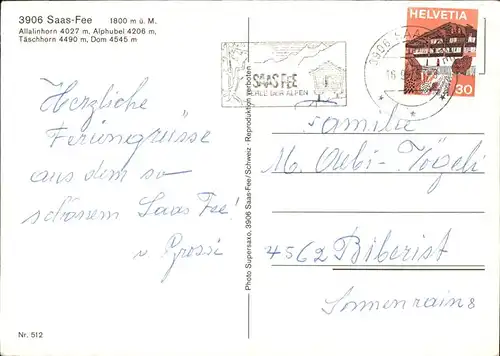 3906 Saas-Fee 1800 m ü. M.
Allalinhorn 4027 m, Alphubel 4206 m,
Täschhorn 4490 m, Dom 4545 m
Herzliche
Feriengrüsse
aus dem so
schönen Saas Fee!
Nr. 512
Photo Supersaxo, 3906 Saas-Fee/Schweiz - Reproduktion verboten
SAAS FEE
PERLE DER ALPEN
3906 SAAS
HELVETIA
30
Familie
M. Aebi-Vögeli
4562 Biberist
Sonnenrain 8